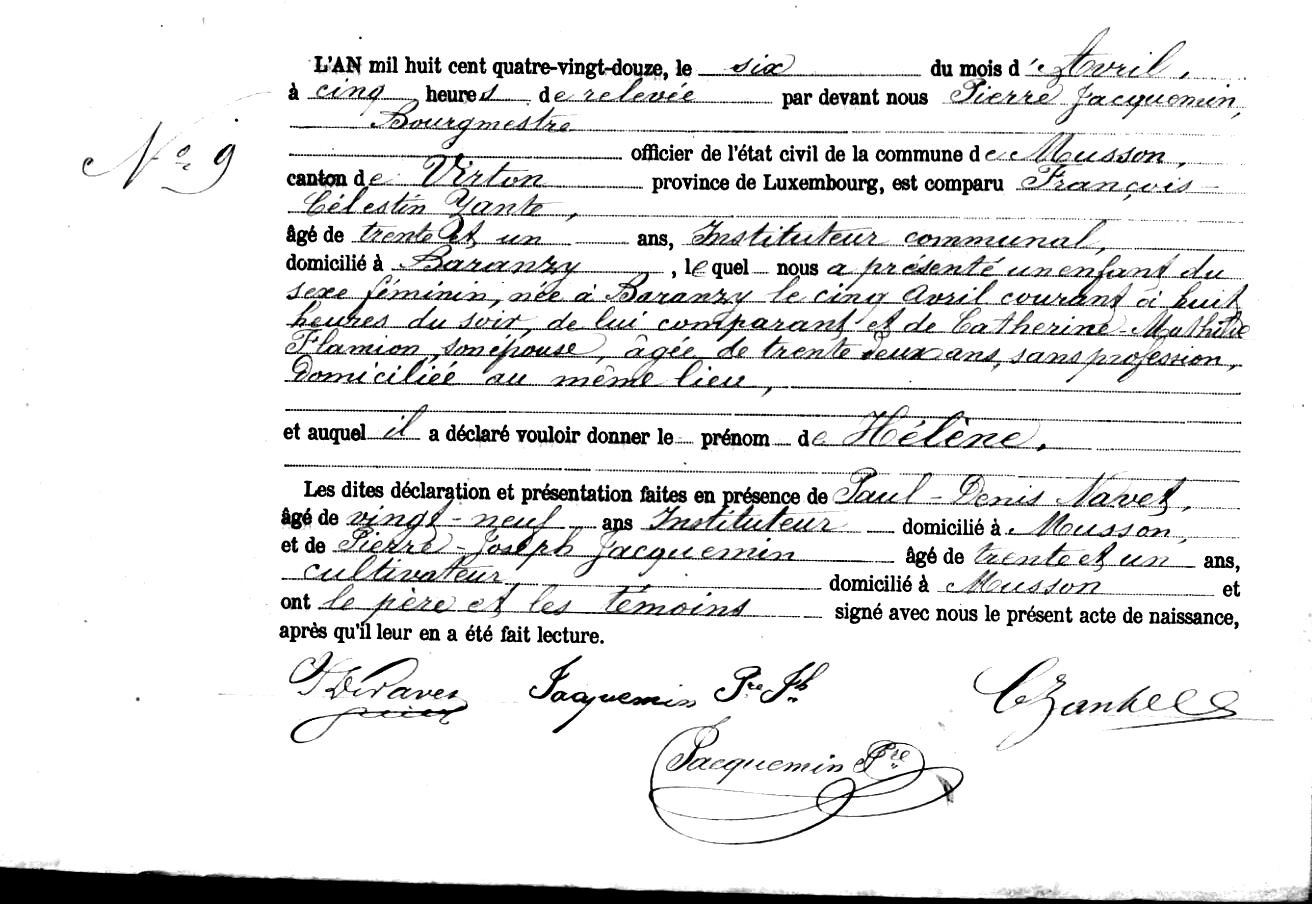 L'AN mil huit cent quatre-vingt-douze, le six du mois d'Avril,
à cinq heures de relevée par devant nous Pierre Jacquemin,
Bourgmestre
Nº 9
officier de l'état civil de la commune de Musson,
canton de Virton province de Luxembourg, est comparu François-
Célestin Zante,
âgé de trente et un ans, Instituteur communal,
domicilié à Baranzy, lequel nous a présenté un enfant du
sexe féminin, née à Baranzy le cinq Avril courant à huit
heures du soir, de lui comparant et de Catherine-Mathilde
Flamion, son épouse, âgée de trente deux ans, sans profession,
domiciliée au même lieu,
et auquel il a déclaré vouloir donner le prénom de Hélène.
Les dites déclaration et présentation faites en présence de Paul-Denis Navet,
âgé de vingt-neuf ans Instituteur domicilié à Musson,
et de Pierre-Joseph Jacquemin âgé de trente et un ans,
cultivateur domicilié à Musson et
ont le père et les témoins signé avec nous le présent acte de naissance,
après qu'il leur en a été fait lecture.
Jacquemin Pre Jh CZante
Jacquemin Pre